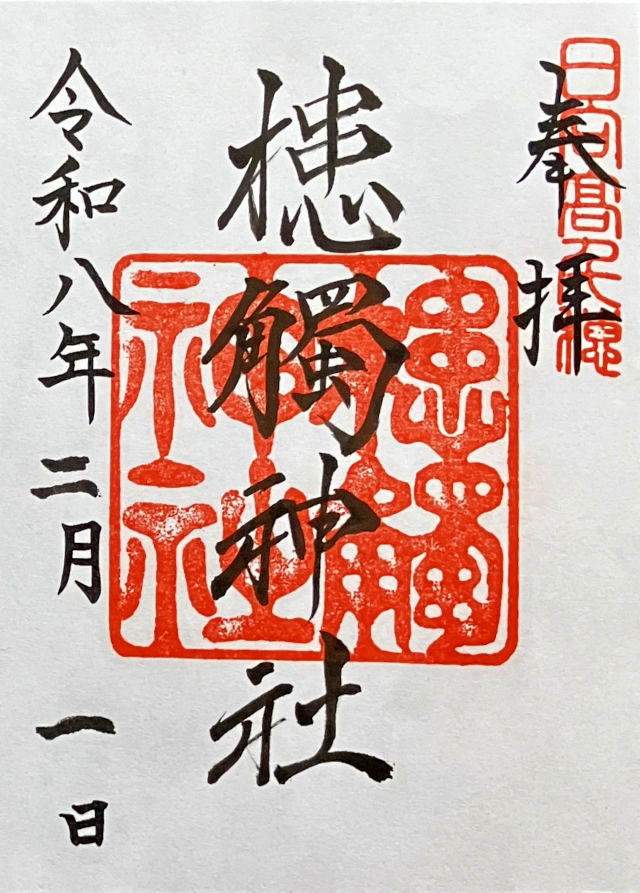 奉拝
日向高千穂
槵觸神社
槵觸神社
令和八年二月一日